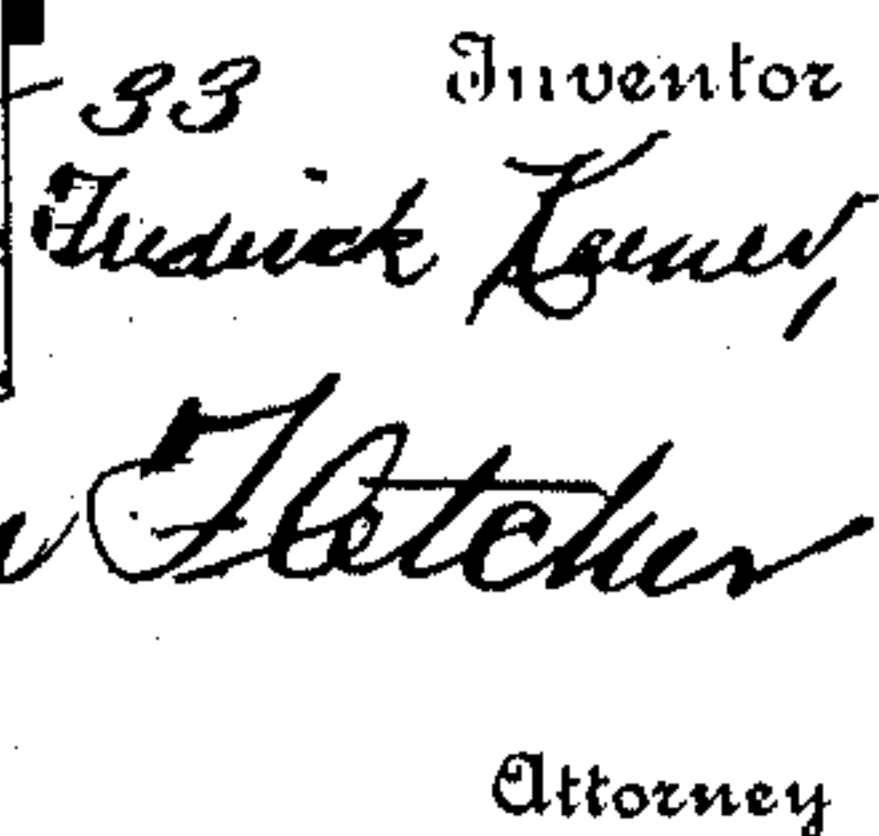 33
Inventor
Frederick Koerner,
Fletcher
Attorney